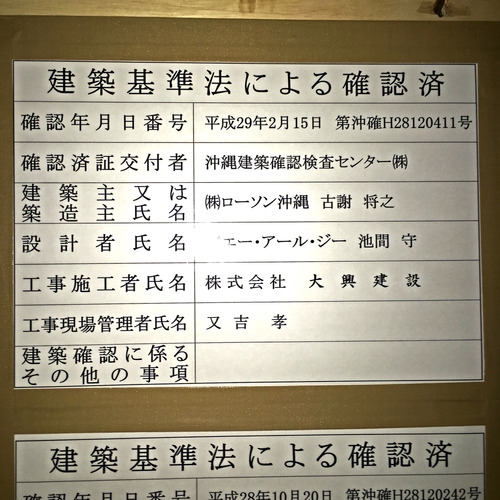 建築基準法による確認済
確認年月日番号 平成29年2月15日 第沖確H28120411号
確認済証交付者 沖縄建築確認検査センター㈱
建築主又は
築造主氏名 ㈱ローソン沖縄 古謝 将之
設計者氏名 エー・アール・ジー 池間 守
工事施工者氏名 株式会社 大興建設
工事現場管理者氏名 又吉 孝
建築確認に係る
その他の事項
建築基準法による確認済
確認年月日番号 平成28年10月20日 第沖確H28120242号